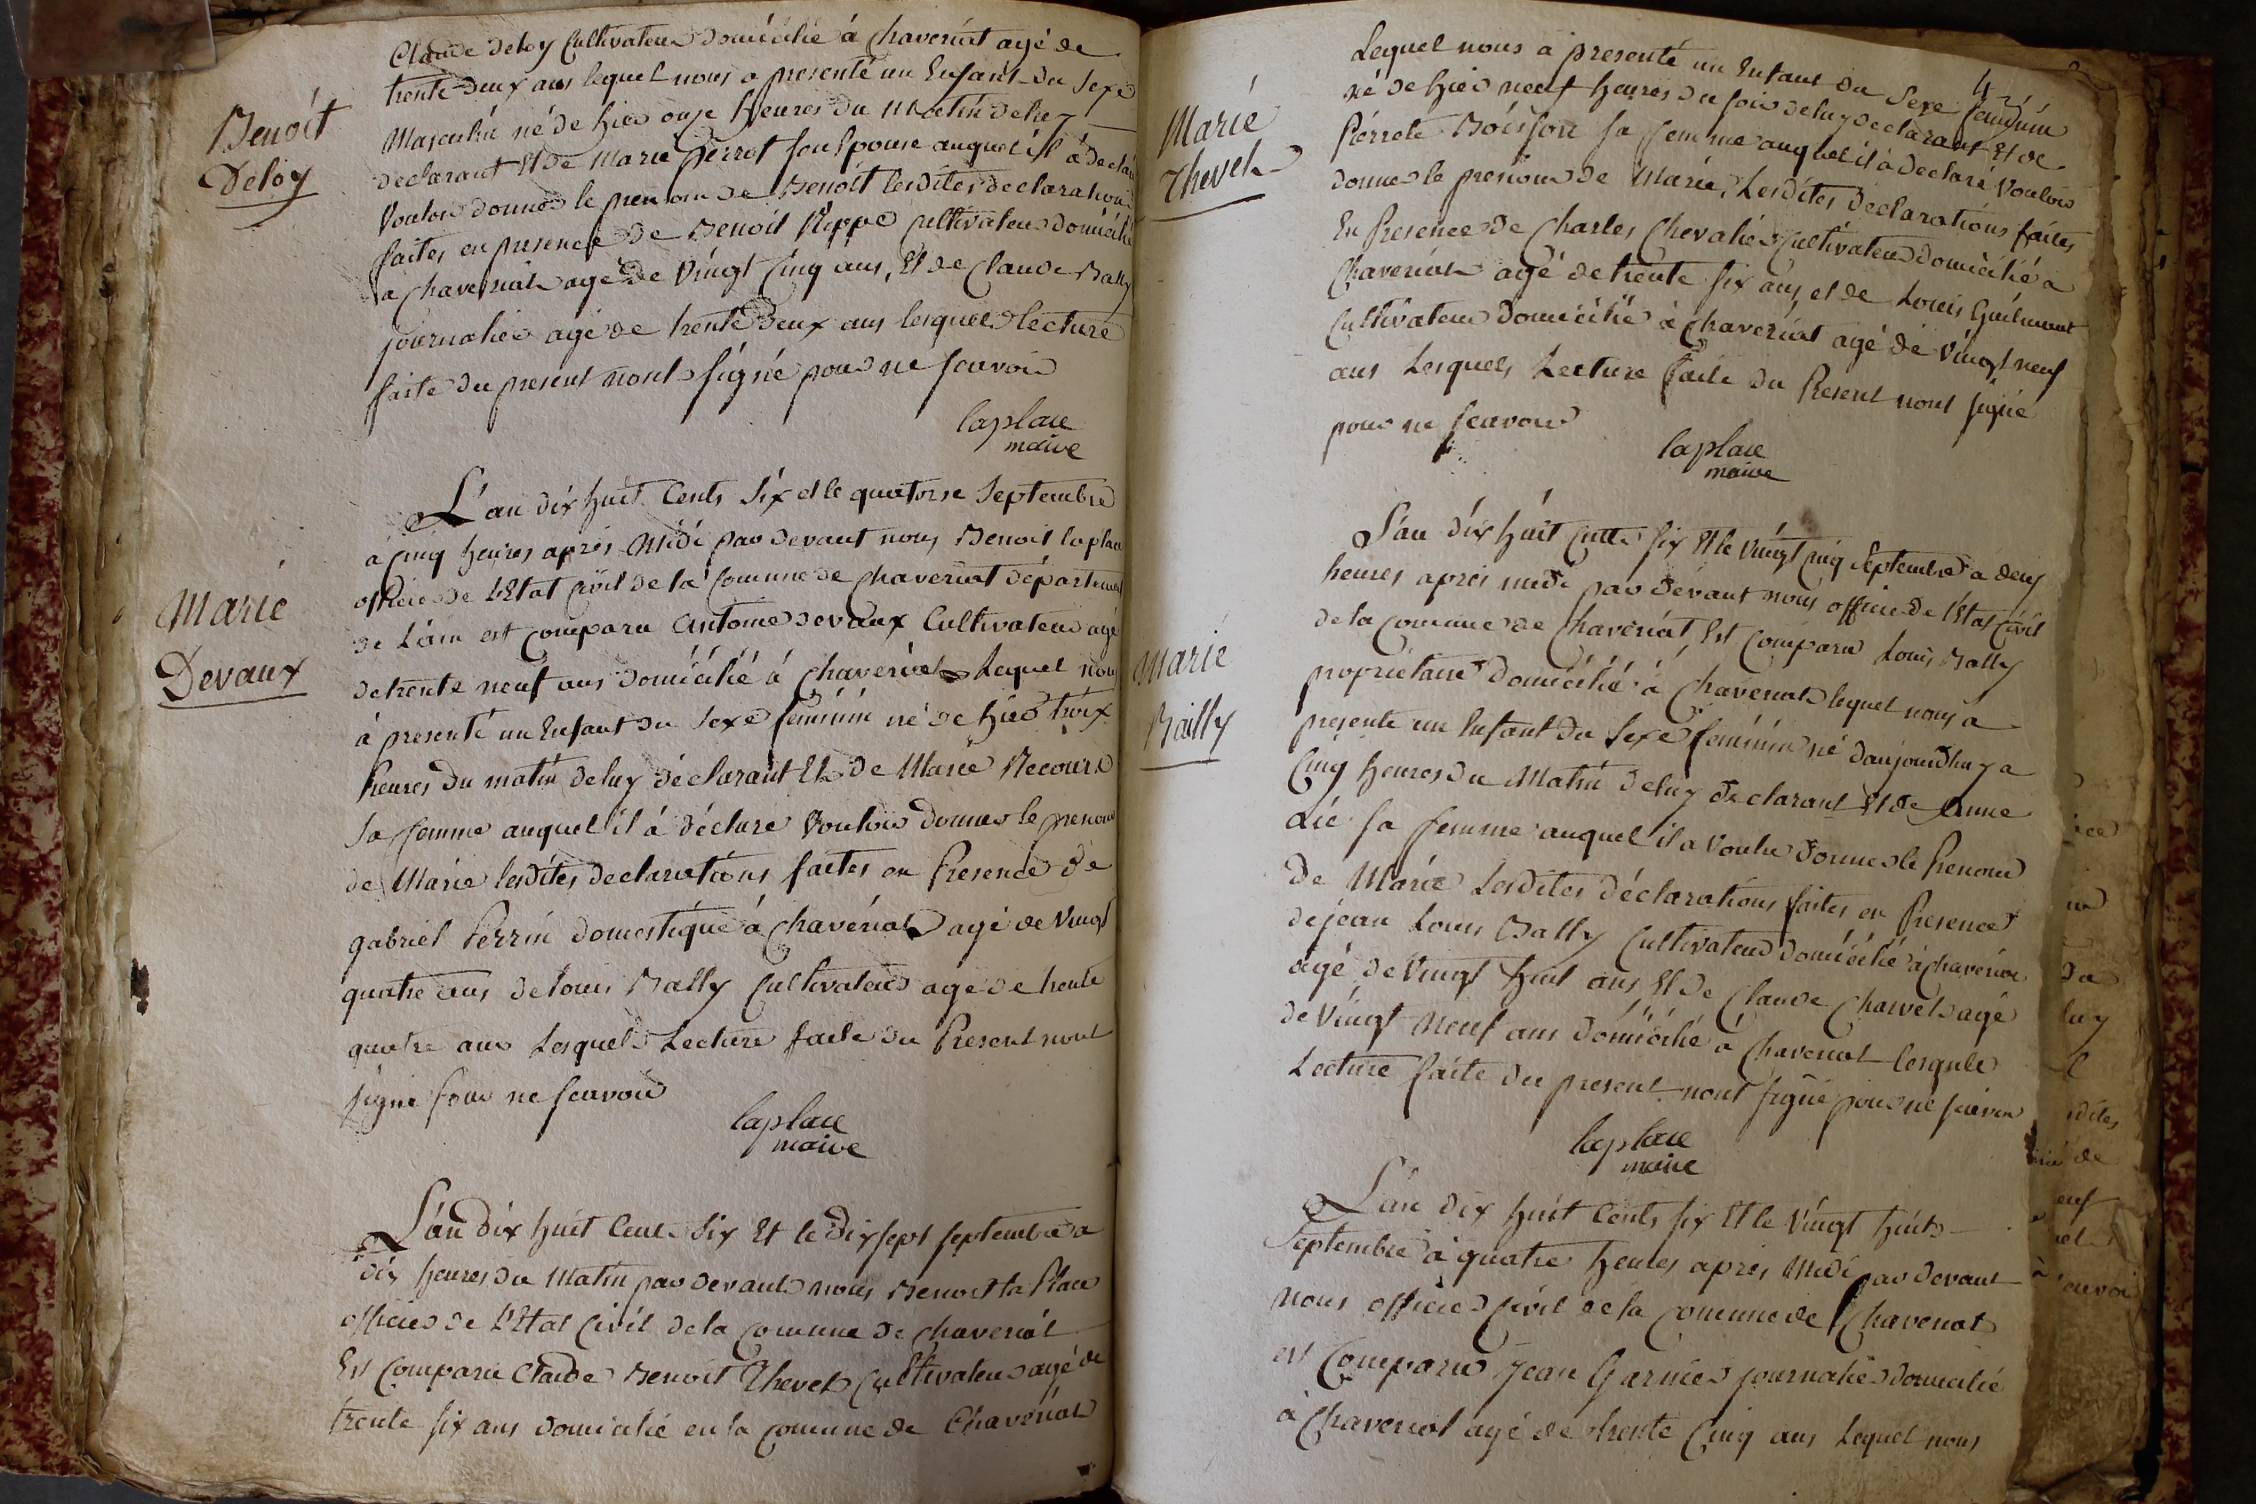 Claude deloy Cultivateur domicilié á Chaveriat agé de
trente deux ans lequel nous a presenté un Enfant du Sexe
Masculin né de hier onze heures du Matin deluy
Benoit
Deloy
declarant Et de Marie perrot son Epouse auquel il á declaré
Vouloir donner le prenom de Benoit lesdites declarations
faites en presence de Benoit Rippe Cultivateur domicilié
a Chaveriat agé de Vingt Cinq ans, Et de Claude Bally
journalier agé de trente Deux ans lesquels lecture
faite du present nont signé pour ne scavoir
laplace
maire
L'an dix huit Cents Six et le quatorse Septembre
á Cinq heures aprés Midi par devant nous Benoit laplace
officier de L'Etat Civil de la Commune de Chaveriat département
Marie
Devaux
de L'ain est Comparu antoine devaux Cultivateur agé
de trente neuf ans domicilié á Chaveriat Lequel nous
á presenté un Enfant du Sexe feminin né de hier troix
heures du matin deluy déclarant Et de Marie Recourd
sa femme auquel il á déclaré Vouloir donner le prenom
de Marie lesdites declarations faites en Presence de
gabriel Perrin domestique á Chavériat agé de Vingt
quatre ans de louis Bally Cultivateur agé de trente
quatre ans Lesquels Lecture faite du Present nont
signé pour ne scavoir
laplace
maire
L'an Dix huit Cents Six Et le Dix sept septembre a
dix heures du Matin par devant nous Benoit la Place
officier de L'Etat Civil de la Commune de Chaveriat
Est Comparu Claude Benoit Thevet Cultivateur agé de
trente six ans domicilié en la Commune de Chaveriat
Lequel nous a presenté un Enfant du Sexe feminin
né de hier neuf heures du soir deluy declarant Et de
Marie
Thevet
Pierrete Boisson sa femme auquel il á declaré Vouloir
donner le prenom de Marie, Lesdites déclarations faites
En Presence de Charles Chevalier Cultivateur domicilié a
Chaveriat agé de trente six ans, et de Louis Guilment
Cultivateur Domicilié á Chaveriat agé de Vingt neuf
ans Lesquels Lecture faite du Present nont signé
pour ne scavoir
laplace
maire
L'an dix huit Cents six Et le Vingt Cinq Septembre a deux
heures aprés midi par devant nous officier de l'Etat Civil
de la Commune de Chaveriat, Est Comparu Louis Bally
Marie
Bailly
propriétaire domicilié á Chaveriat lequel nous a
presenté un Enfant du Sexe feminin né daujourdhuy a
Cinq heures du Matin deluy declarant Et de Anne
sa femme auquel il a Voulu donner le Prenom
de Marie Lesdites déclarations faites en Presence
de jean Louis Bally Cultivateur domicilié á Chaveriat
agé de Vingt huit ans Et de Claude Charvet agé
de Vingt neuf ans domicilié á Chaveriat lesquels
Lecture faite du present nont signé pour ne scavoir
laplace
maire
L'an dix huit Cents six Et le Vingt huit
Septembre á quatre heures apres Midi par devant
nous officier Civil de la Commune de Chaveriat
est Comparu Jean Garnier journalier domicilié
á Chaveriat agé de trente Cinq ans Lequel nous